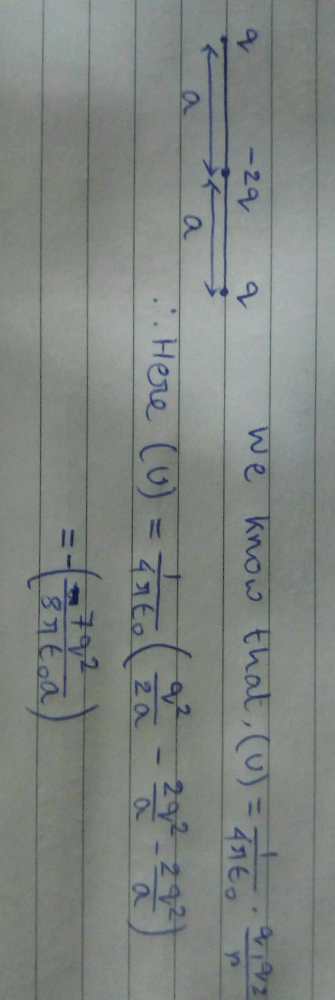 q -2q q
a a
We know that, (U) = 1/4πε₀ · q₁q₂/r
∴ Here (U) = 1/4πε₀ ( q²/2a - 2q²/a - 2q²/a )
= - ( 7q²/8πε₀a )